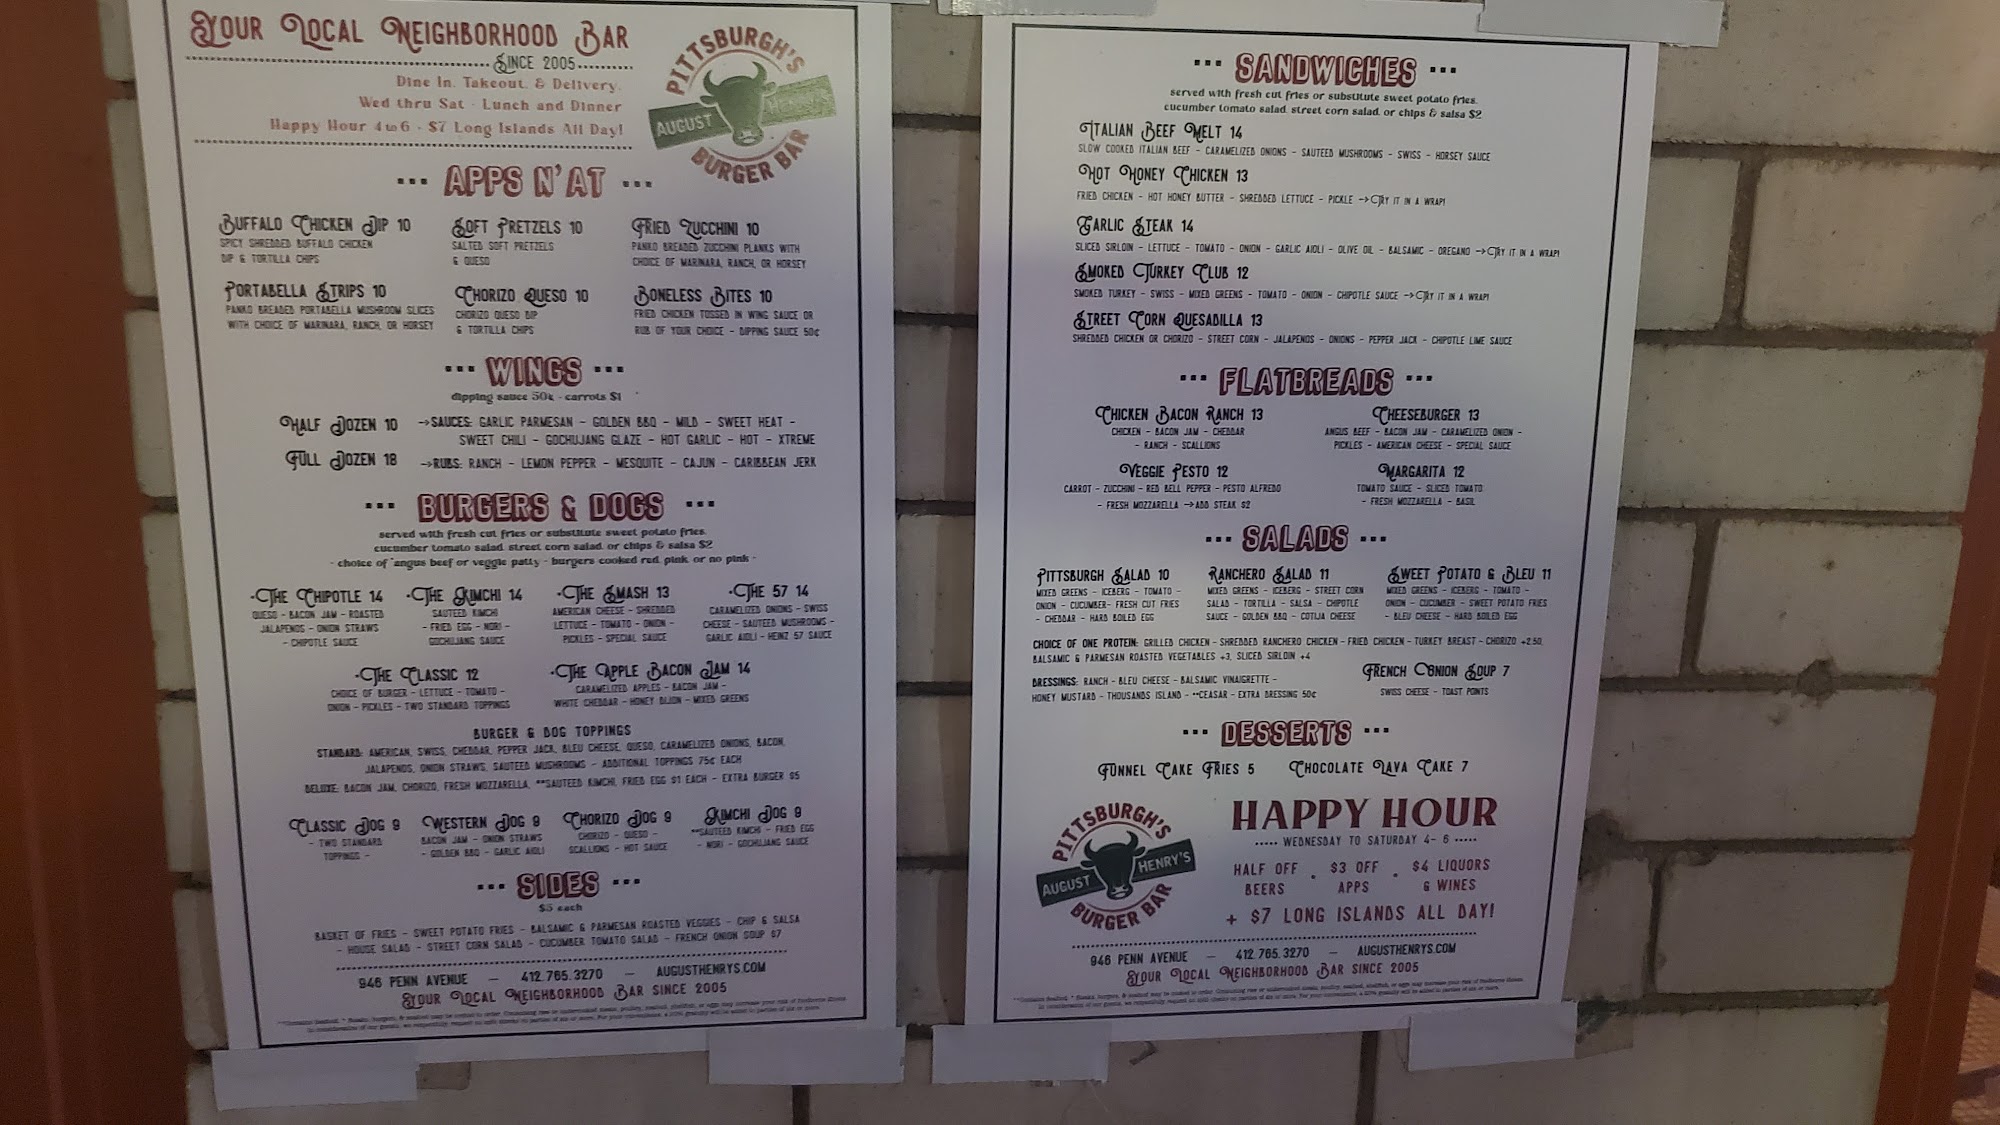 Your Local Neighborhood Bar
Since 2005
Dine In, Takeout, & Delivery,
Wed thru Sat - Lunch and Dinner
Happy Hour 4 to 6 - $7 Long Islands All Day!
PITTSBURGH'S
AUGUST HENRY'S
BURGER BAR
APPS N' AT
Buffalo Chicken Dip 10
SPICY SHREDDED BUFFALO CHICKEN
DIP & TORTILLA CHIPS
Soft Pretzels 10
SALTED SOFT PRETZELS
& QUESO
Fried Zucchini 10
PANKO BREADED ZUCCHINI PLANKS WITH
CHOICE OF MARINARA, RANCH, OR HORSEY
Portabella Strips 10
PANKO BREADED PORTABELLA MUSHROOM SLICES
WITH CHOICE OF MARINARA, RANCH, OR HORSEY
Chorizo Queso 10
CHORIZO QUESO DIP
& TORTILLA CHIPS
Boneless Bites 10
FRIED CHICKEN TOSSED IN WING SAUCE OR
RUB OF YOUR CHOICE - DIPPING SAUCE 50¢
WINGS
dipping sauce 50¢ - carrots $1
Half Dozen 10
Full Dozen 18
→SAUCES: GARLIC PARMESAN - GOLDEN BBQ - MILD - SWEET HEAT -
SWEET CHILI - GOCHUJANG GLAZE - HOT GARLIC - HOT - XTREME
→RUBS: RANCH - LEMON PEPPER - MESQUITE - CAJUN - CARIBBEAN JERK
BURGERS & DOGS
served with fresh cut fries or substitute sweet potato fries,
cucumber tomato salad, street corn salad, or chips & salsa $2
- choice of *angus beef or veggie patty - burgers cooked red, pink, or no pink -
•The Chipotle 14
QUESO - BACON JAM - ROASTED
JALAPENOS - ONION STRAWS
- CHIPOTLE SAUCE
•The Kimchi 14
SAUTEED KIMCHI
- FRIED EGG - NORI -
GOCHUJANG SAUCE
•The Smash 13
AMERICAN CHEESE - SHREDDED
LETTUCE - TOMATO - ONION -
PICKLES - SPECIAL SAUCE
•The 57 14
CARAMELIZED ONIONS - SWISS
CHEESE - SAUTEED MUSHROOMS -
GARLIC AIOLI - HEINZ 57 SAUCE
•The Classic 12
CHOICE OF BURGER - LETTUCE - TOMATO -
ONION - PICKLES - TWO STANDARD TOPPINGS
•The Apple Bacon Jam 14
CARAMELIZED APPLES - BACON JAM -
WHITE CHEDDAR - HONEY DIJON - MIXED GREENS
BURGER & DOG TOPPINGS
STANDARD: AMERICAN, SWISS, CHEDDAR, PEPPER JACK, BLEU CHEESE, QUESO, CARAMELIZED ONIONS, BACON,
JALAPENOS, ONION STRAWS, SAUTEED MUSHROOMS - ADDITIONAL TOPPINGS 75¢ EACH
DELUXE: BACON JAM, CHORIZO, FRESH MOZZARELLA, **SAUTEED KIMCHI, FRIED EGG $1 EACH - EXTRA BURGER $5
Classic Dog 9
- TWO STANDARD
TOPPINGS -
Western Dog 9
BACON JAM - ONION STRAWS
- GOLDEN BBQ - GARLIC AIOLI
Chorizo Dog 9
CHORIZO - QUESO -
SCALLIONS - HOT SAUCE
Kimchi Dog 9
**SAUTEED KIMCHI - FRIED EGG
- NORI - GOCHUJANG SAUCE
SIDES
$5 each
BASKET OF FRIES - SWEET POTATO FRIES - BALSAMIC & PARMESAN ROASTED VEGGIES - CHIP & SALSA
- HOUSE SALAD - STREET CORN SALAD - CUCUMBER TOMATO SALAD - FRENCH ONION SOUP $7
946 PENN AVENUE — 412.765.3270 — AUGUSTHENRYS.COM
Your Local Neighborhood Bar SINCE 2005
SANDWICHES
served with fresh cut fries or substitute sweet potato fries,
cucumber tomato salad, street corn salad, or chips & salsa $2
Italian Beef Melt 14
SLOW COOKED ITALIAN BEEF - CARAMELIZED ONIONS - SAUTEED MUSHROOMS - SWISS - HORSEY SAUCE
Hot Honey Chicken 13
FRIED CHICKEN - HOT HONEY BUTTER - SHREDDED LETTUCE - PICKLE →TRY IT IN A WRAP!
Garlic Steak 14
SLICED SIRLOIN - LETTUCE - TOMATO - ONION - GARLIC AIOLI - OLIVE OIL - BALSAMIC - OREGANO →TRY IT IN A WRAP!
Smoked Turkey Club 12
SMOKED TURKEY - SWISS - MIXED GREENS - TOMATO - ONION - CHIPOTLE SAUCE →TRY IT IN A WRAP!
Street Corn Quesadilla 13
SHREDDED CHICKEN OR CHORIZO - STREET CORN - JALAPENOS - ONIONS - PEPPER JACK - CHIPOTLE LIME SAUCE
FLATBREADS
Chicken Bacon Ranch 13
CHICKEN - BACON JAM - CHEDDAR
- RANCH - SCALLIONS
Cheeseburger 13
ANGUS BEEF - BACON JAM - CARAMELIZED ONION -
PICKLES - AMERICAN CHEESE - SPECIAL SAUCE
Veggie Pesto 12
CARROT - ZUCCHINI - RED BELL PEPPER - PESTO ALFREDO
- FRESH MOZZARELLA →ADD STEAK $2
Margarita 12
TOMATO SAUCE - SLICED TOMATO
- FRESH MOZZARELLA - BASIL
SALADS
Pittsburgh Salad 10
MIXED GREENS - ICEBERG - TOMATO -
ONION - CUCUMBER- FRESH CUT FRIES
- CHEDDAR - HARD BOILED EGG
Ranchero Salad 11
MIXED GREENS - ICEBERG - STREET CORN
SALAD - TORTILLA - SALSA - CHIPOTLE
SAUCE - GOLDEN BBQ - COTIJA CHEESE
Sweet Potato & Bleu 11
MIXED GREENS - ICEBERG - TOMATO -
ONION - CUCUMBER - SWEET POTATO FRIES
- BLEU CHEESE - HARD BOILED EGG
CHOICE OF ONE PROTEIN: GRILLED CHICKEN - SHREDDED RANCHERO CHICKEN - FRIED CHICKEN - TURKEY BREAST - CHORIZO +2.50,
BALSAMIC & PARMESAN ROASTED VEGETABLES +3, SLICED SIRLOIN +4
DRESSINGS: RANCH - BLEU CHEESE - BALSAMIC VINAIGRETTE -
HONEY MUSTARD - THOUSANDS ISLAND - **CEASAR - EXTRA DRESSING 50¢
French Onion Soup 7
SWISS CHEESE - TOAST POINTS
DESSERTS
Funnel Cake Fries 5 Chocolate Lava Cake 7
PITTSBURGH'S
AUGUST HENRY'S
BURGER BAR
HAPPY HOUR
WEDNESDAY TO SATURDAY 4- 6
HALF OFF
BEERS
$3 OFF
APPS
$4 LIQUORS
& WINES
+ $7 LONG ISLANDS ALL DAY!
946 PENN AVENUE — 412.765.3270 — AUGUSTHENRYS.COM
Your Local Neighborhood Bar SINCE 2005